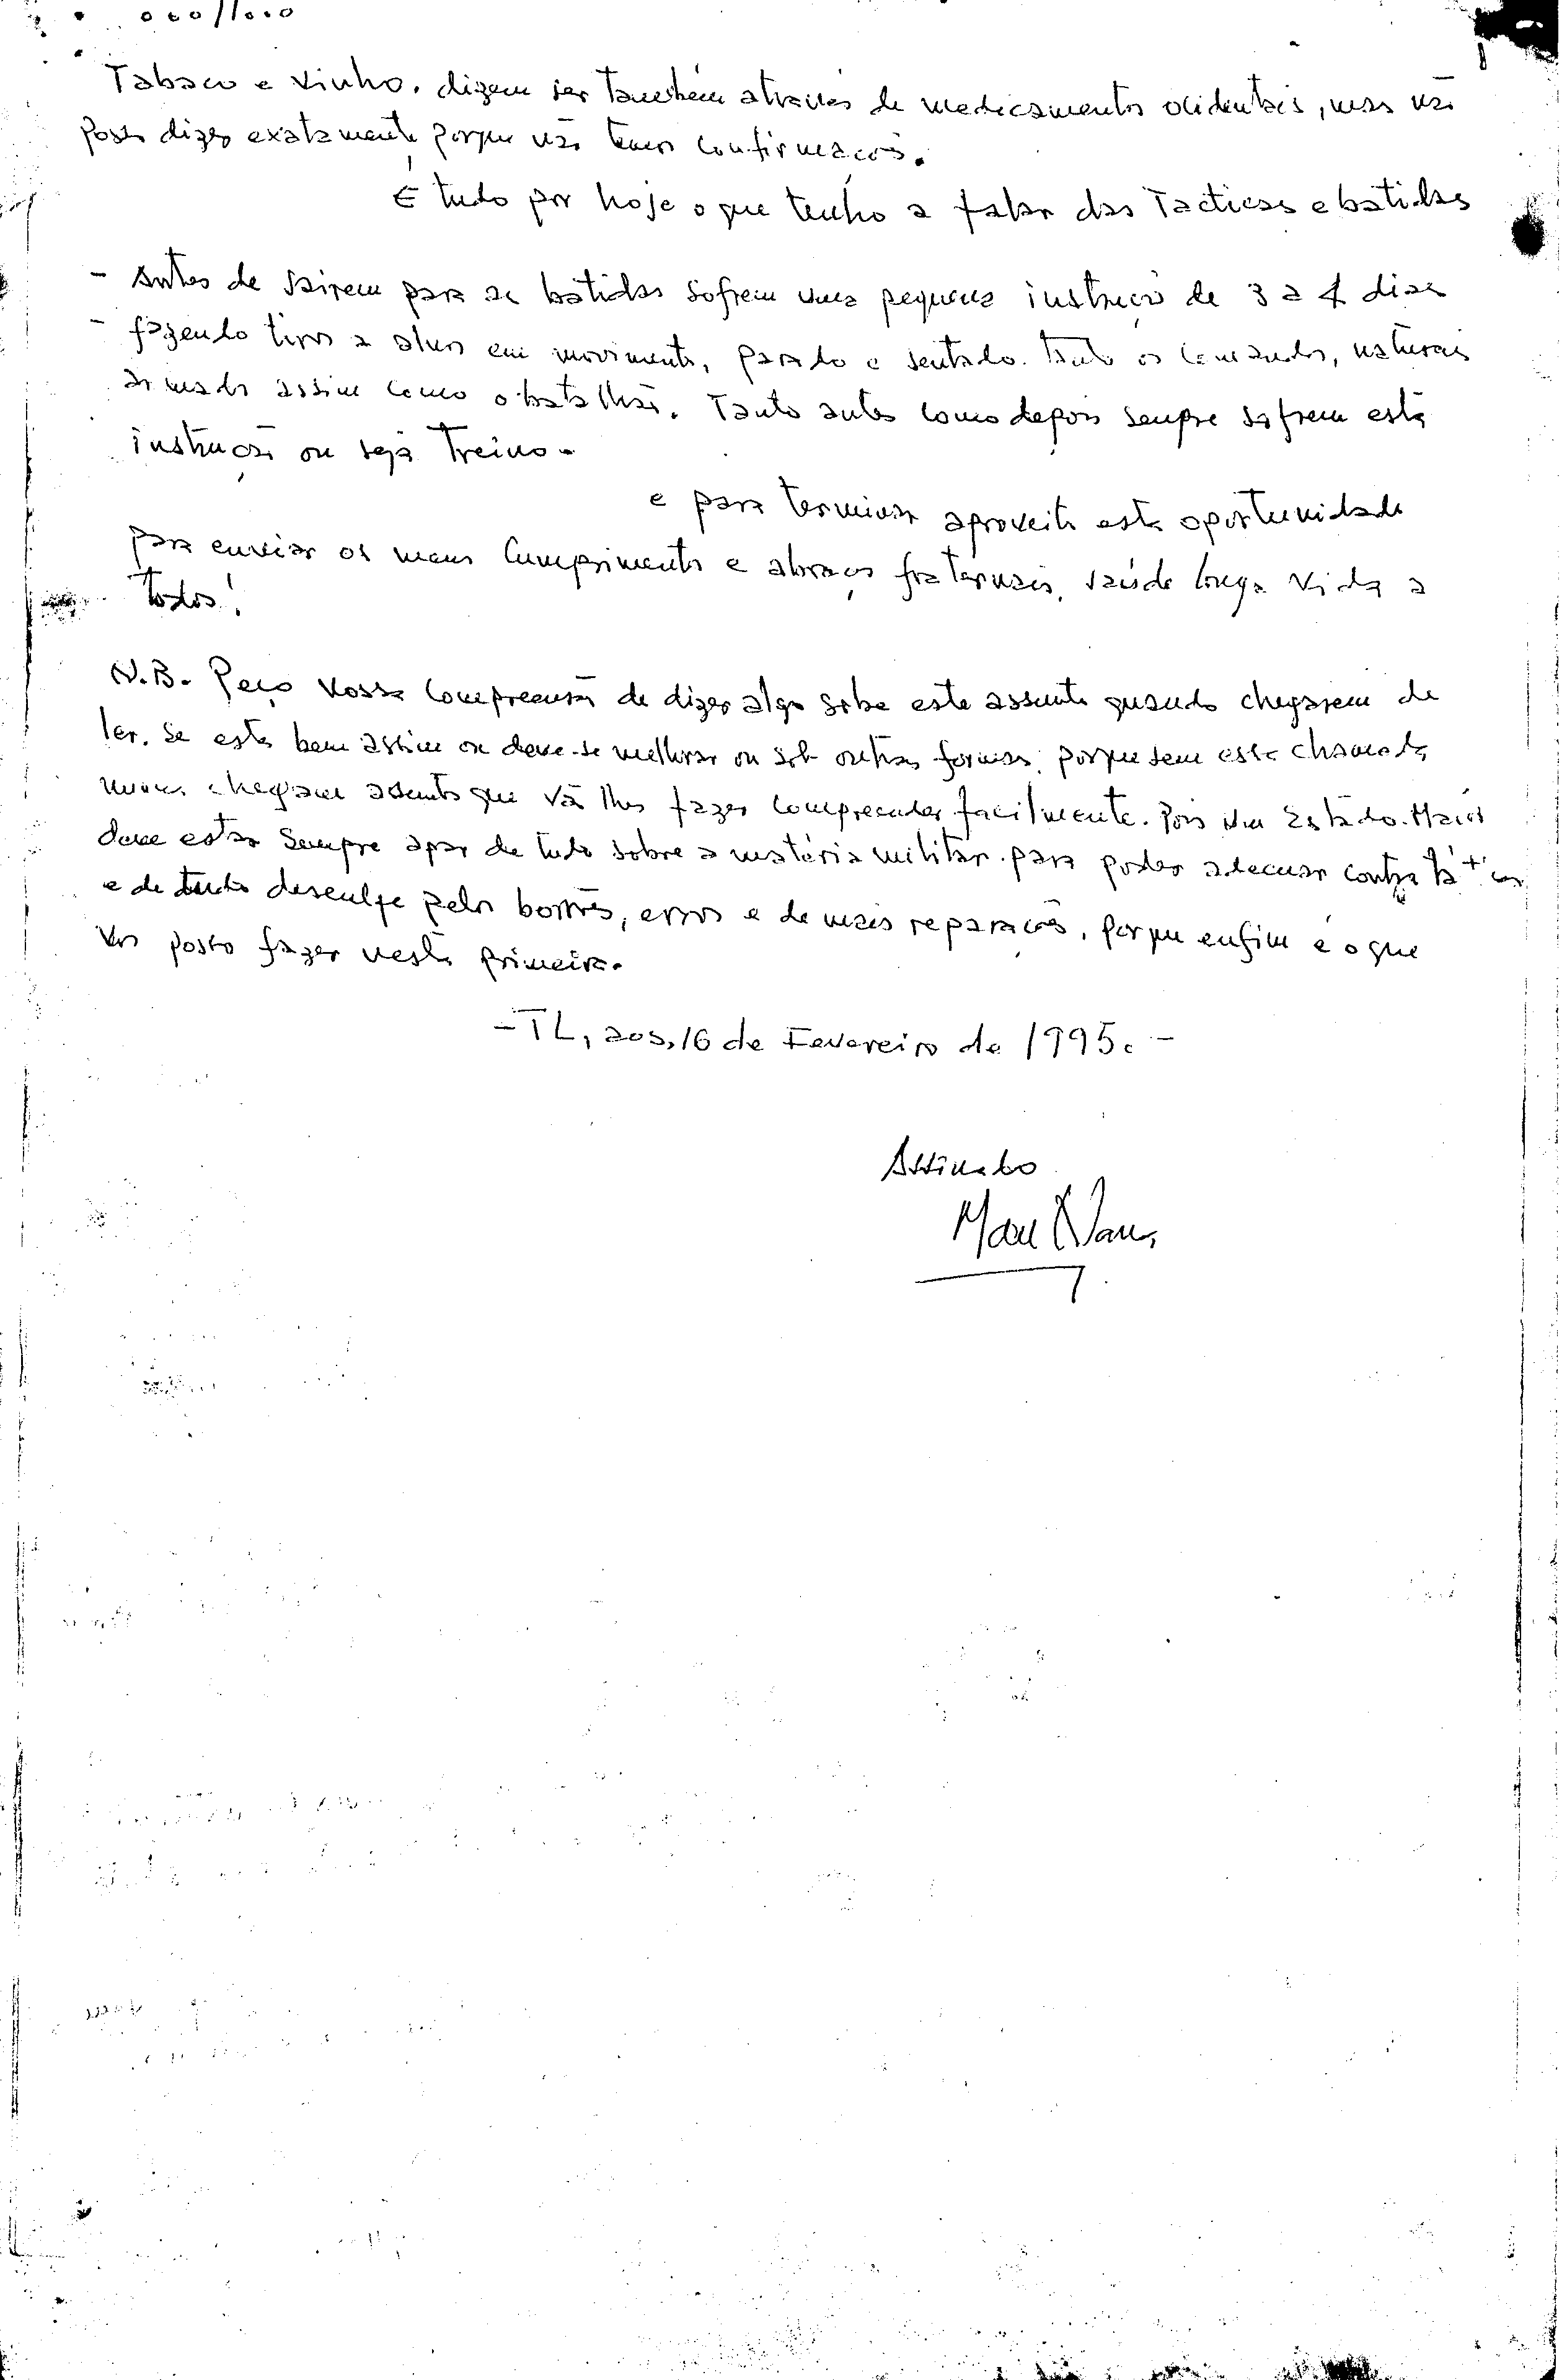 o o o //o o o
Tabaco e vinho, dizem ser tambem através de medicamentos ocidentais, mas não
posso dizer exatamente porque não temos confirmação.
É tudo por hoje o que tenho a falar das Tacticas e batidas
- Antes de sairem para as batidas sofrem uma pequena instrução de 3 a 4 dias
- fazendo tiros a alvos em movimento, parado e sentado. Tanto os comandos, naturais
armados assim como o batalhão. Tanto antes como depois sempre sofrem esta
instrução ou seja Treino.
e para terminar aproveito esta oportunidade
para enviar os meus cumprimentos e abraços fraternais, saúde longa vida a
todos!
N.B. Peço vossa compreensão de dizer algo sobre este assunto quando chegarem de
ler. Se está bem assim ou deve-se melhorar ou sob outras formas, porque sem esta chamada
nunca chegam assunto que vão lhes fazer compreender facilmente. Pois um Estado. Maior
deve estar sempre apar de tudo sobre a matéria militar para poder adecuar contra
e de tudo desculpe pelos borrões, erros e demais reparações, porque enfim é o que
vos posso fazer nesta primeira.
- TL, aos, 16 de Fevereiro de 1995. -
Assinado
Mau Nau